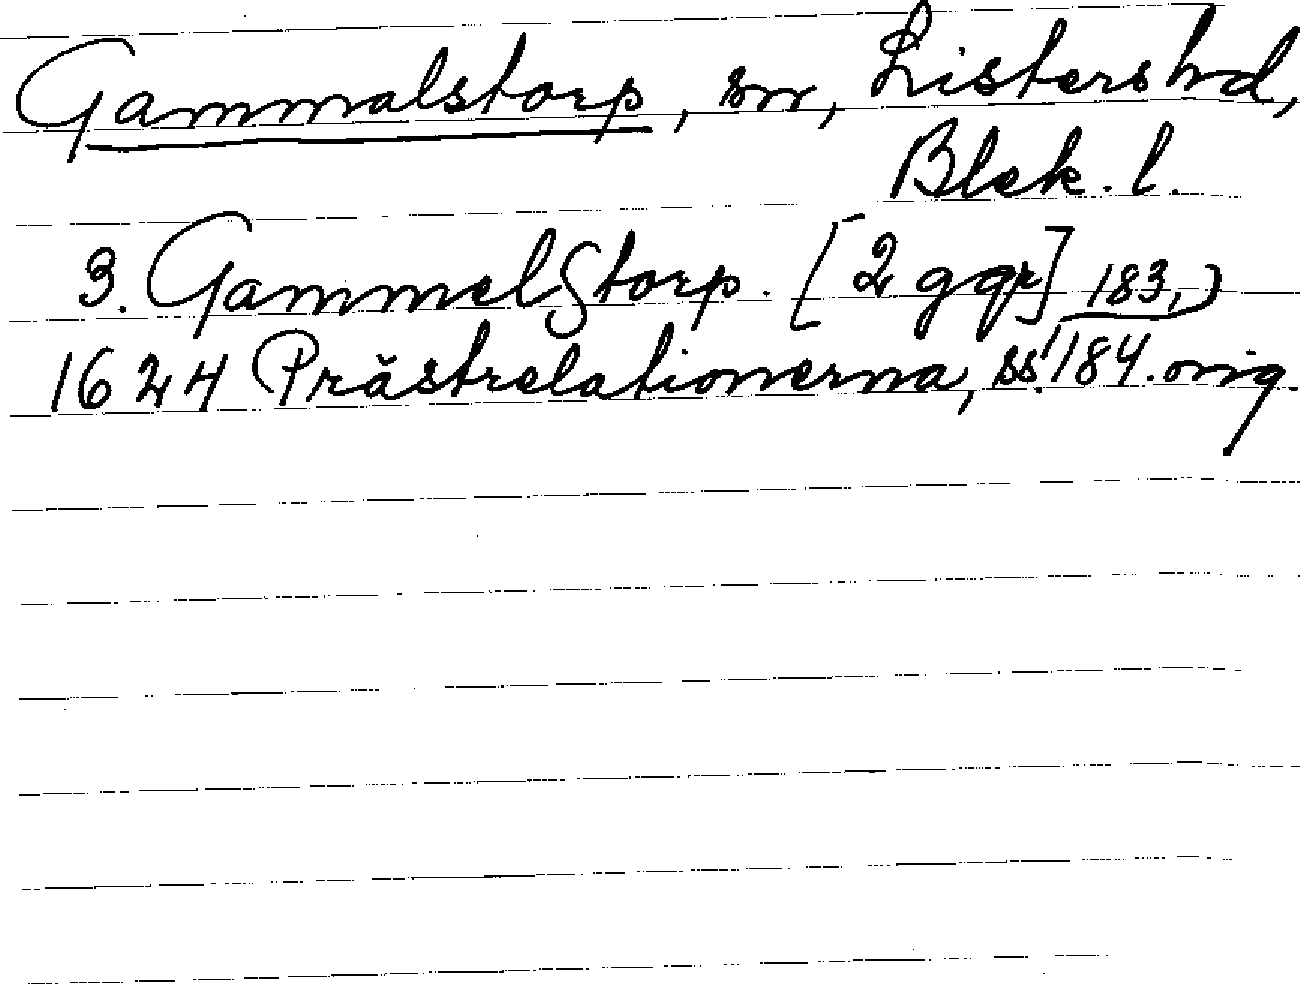 Gammalstorp, sn, Listers hd,
Blek. l.
3. GammelStorp. [2 ggr] 183,
1624 Prästrelationerna, ss. 184. orig.